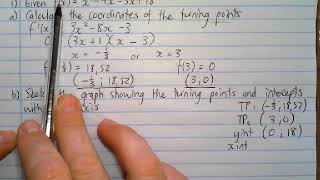 1) Given f(x) = x³ - 4x² - 3x + 18
a) Calculate the coordinates of the turning points
f'(x) 3x² - 8x - 3
(3x + 1)(x - 3)
x = -⅓ or x = 3
18,52 f(3) = 0
(-⅓; 18,52) (3; 0)
b) graph showing the turning points and intercepts
with axis
TP₁ (-⅓; 18,52)
TP₂ (3; 0)
yint (0; 18)
xint